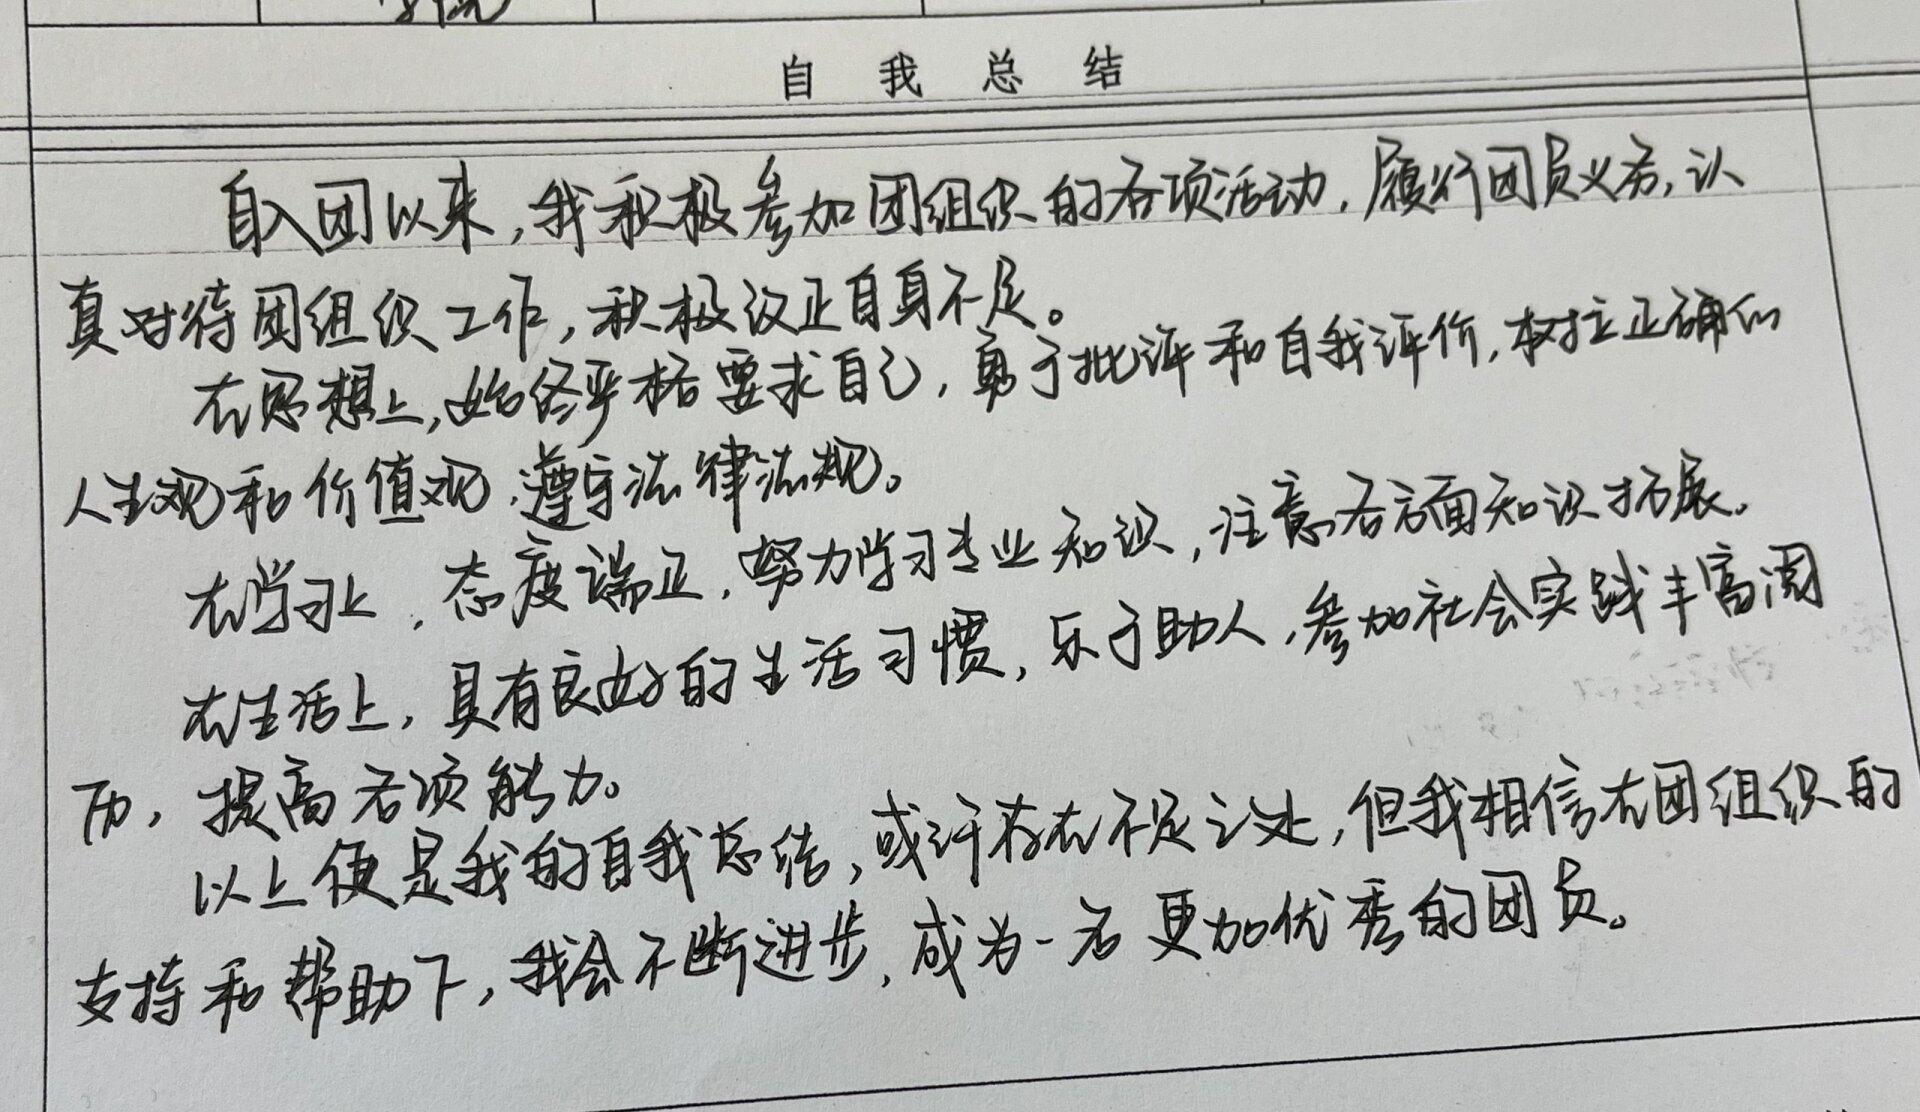 学院
自我总结
自入团以来,我积极参加团组织的各项活动,履行团员义务,认
真对待团组织工作,积极改正自身不足。
在思想上,始终严格要求自己,勇于批评和自我评价,树立正确的
人生观和价值观,遵守法律法规。
在学习上,态度端正,努力学习专业知识,注意各方面知识拓展。
在生活上,具有良好的生活习惯,乐于助人,参加社会实践丰富阅
历,提高各项能力。
以上便是我的自我总结,或许存在不足之处,但我相信在团组织的
支持和帮助下,我会不断进步,成为一名更加优秀的团员。